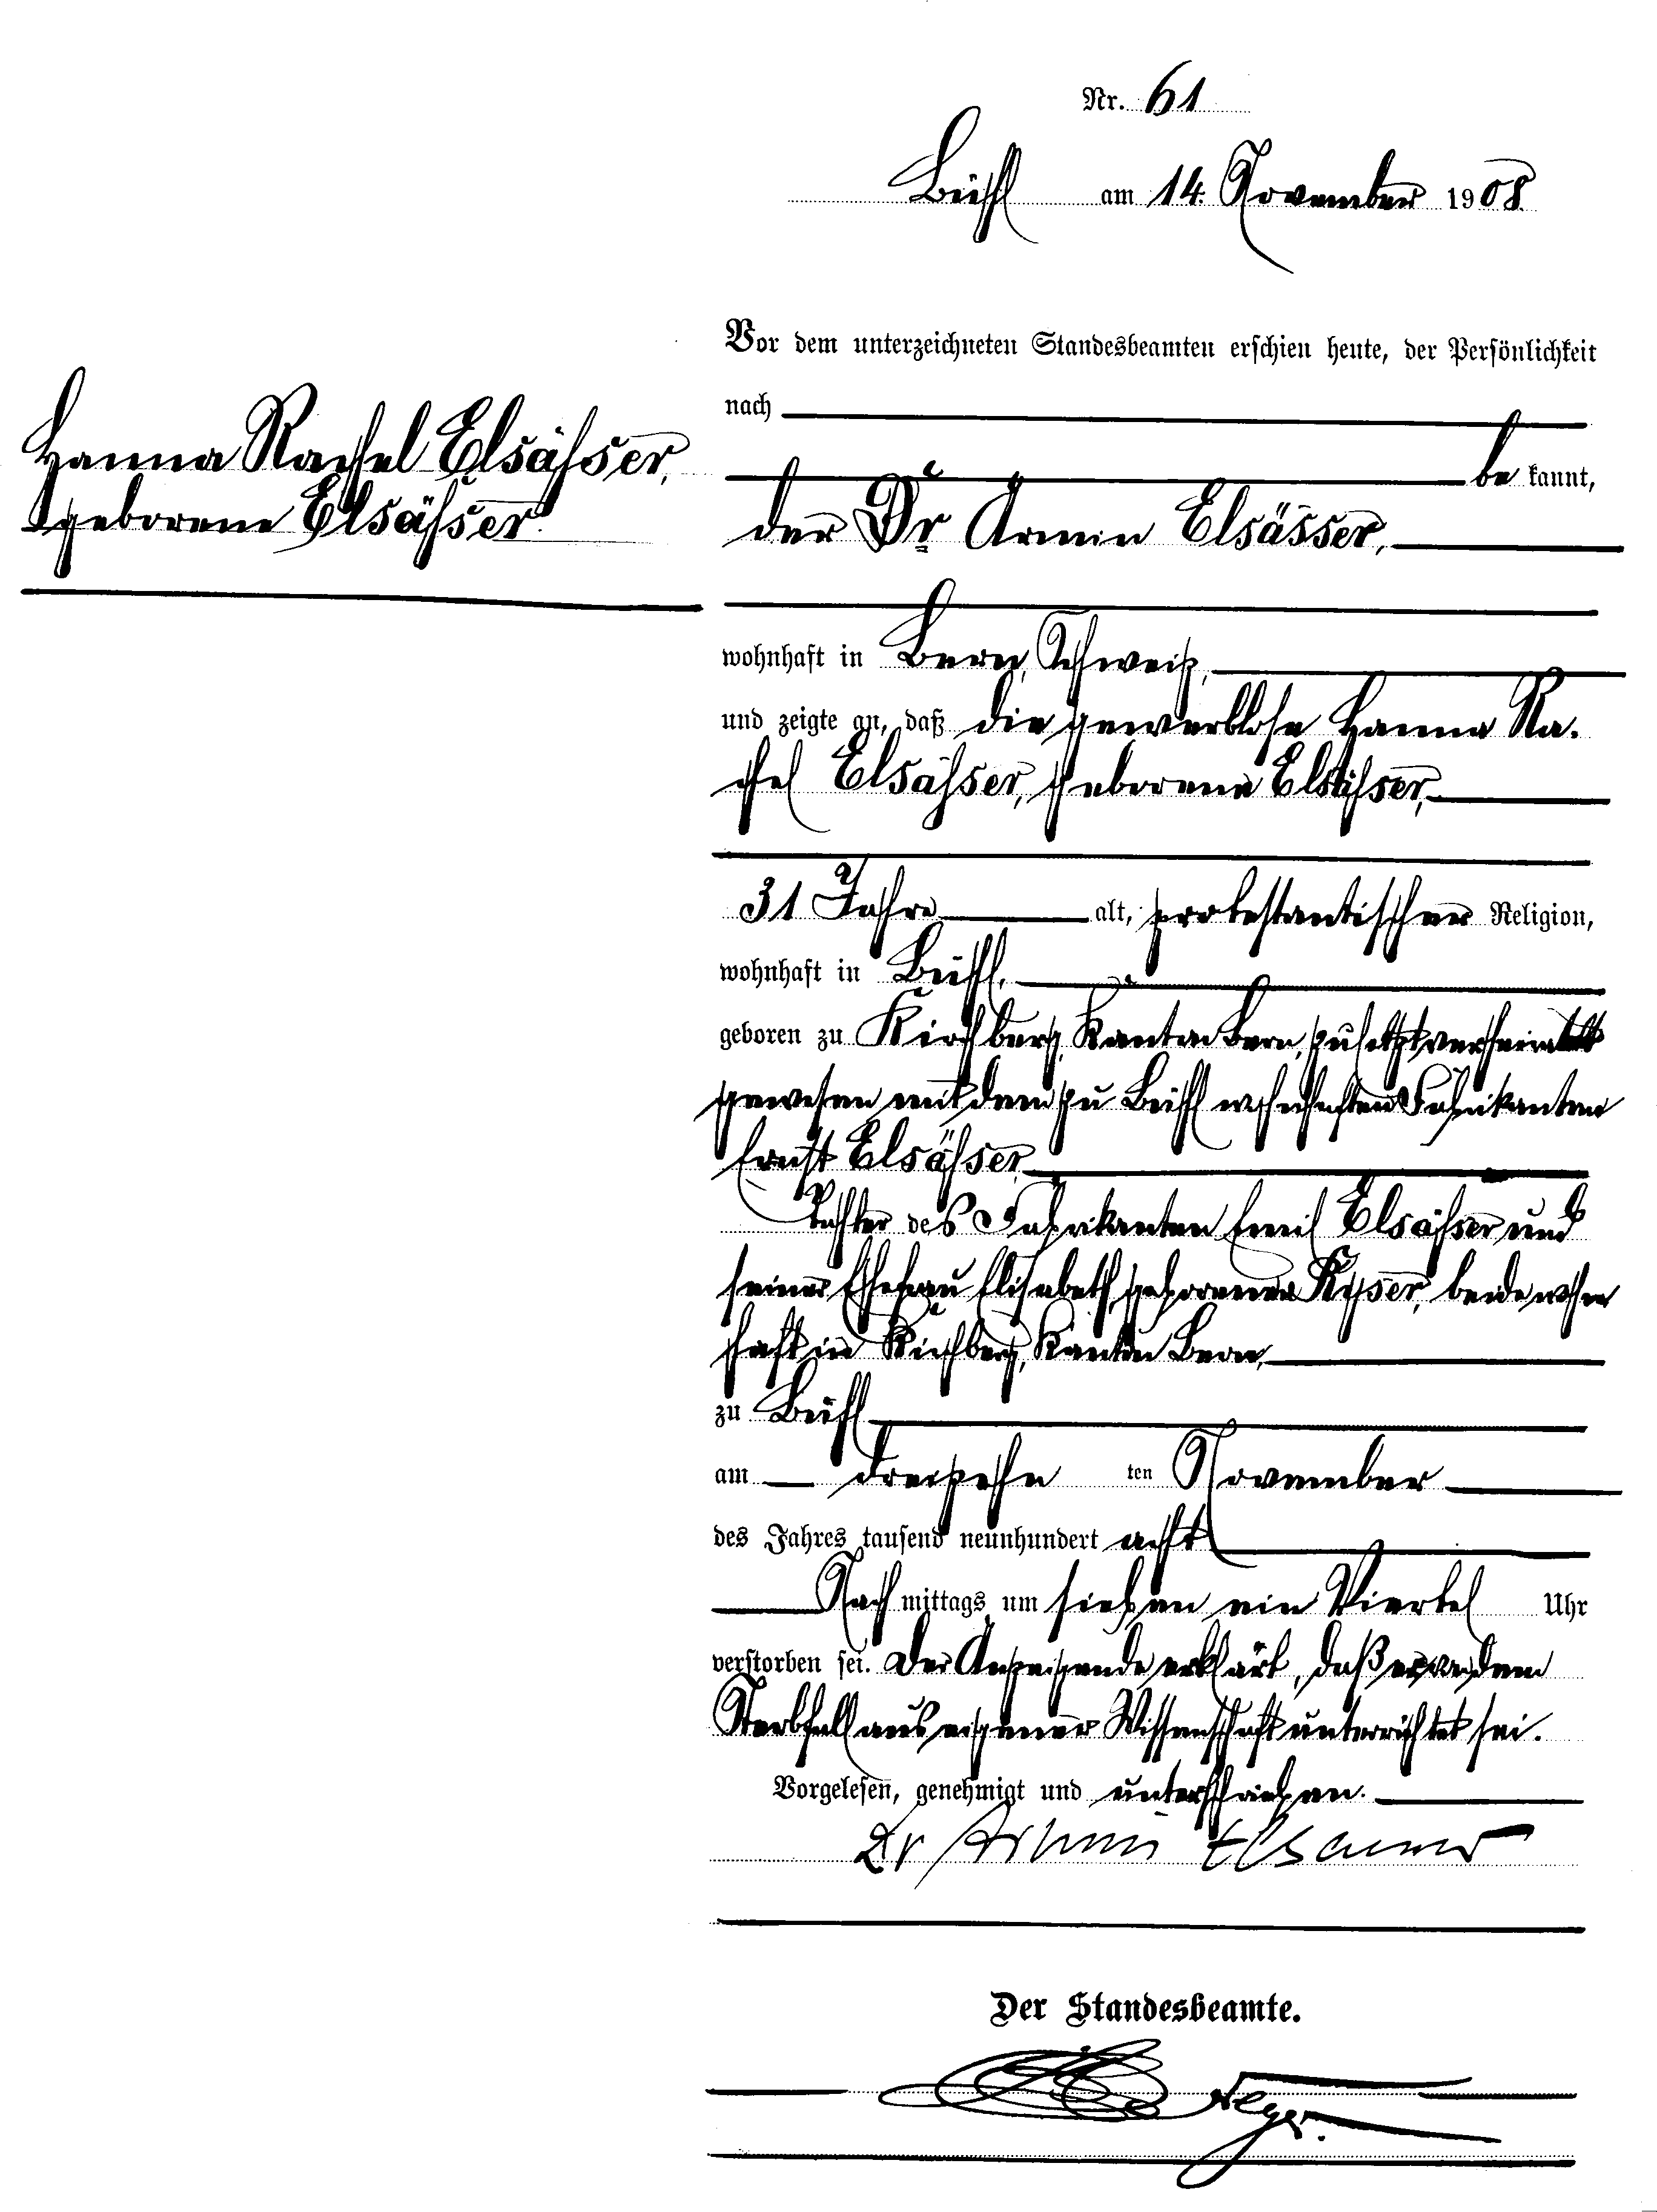 Nr. 61
Bühl am 14. November 1908.
Vor dem unterzeichneten Standesbeamten erschien heute, der Persönlichkeit
nach
be kannt,
Hanna Rachel Elsässer,
geborene Elsässer.
der Dr. Armin Elsässer,
wohnhaft in Bern, Schweiz,
und zeigte an, daß die gewerblose Hanna Ra-
chel Elsässer, geborene Elsässer,
31 Jahre alt, protestantischer Religion,
wohnhaft in Bühl,
geboren zu Kirchberg, Kanton Bern, zuletzt verheiratet
gewesen mit dem zu Bühl wohnhaften Fabrikanten
Ernst Elsässer
Tochter des Fabrikanten Emil Elsässer und
seiner Ehefrau Elisabeth geborenen Kyser, beide wohn
haft in Kirchberg, Kanton Bern,
zu Bühl
am dreizehn ten November
des Jahres tausend neunhundert acht
Nach mittags um sieben ein Viertel Uhr
verstorben sei. Der Anzeigende erklärt, daß er von dem
Sterbfall aus eigener Wissenschaft unterrichtet sei.
Vorgelesen, genehmigt und unterschrieben.
Dr Armin Elsaesser
Der Standesbeamte.